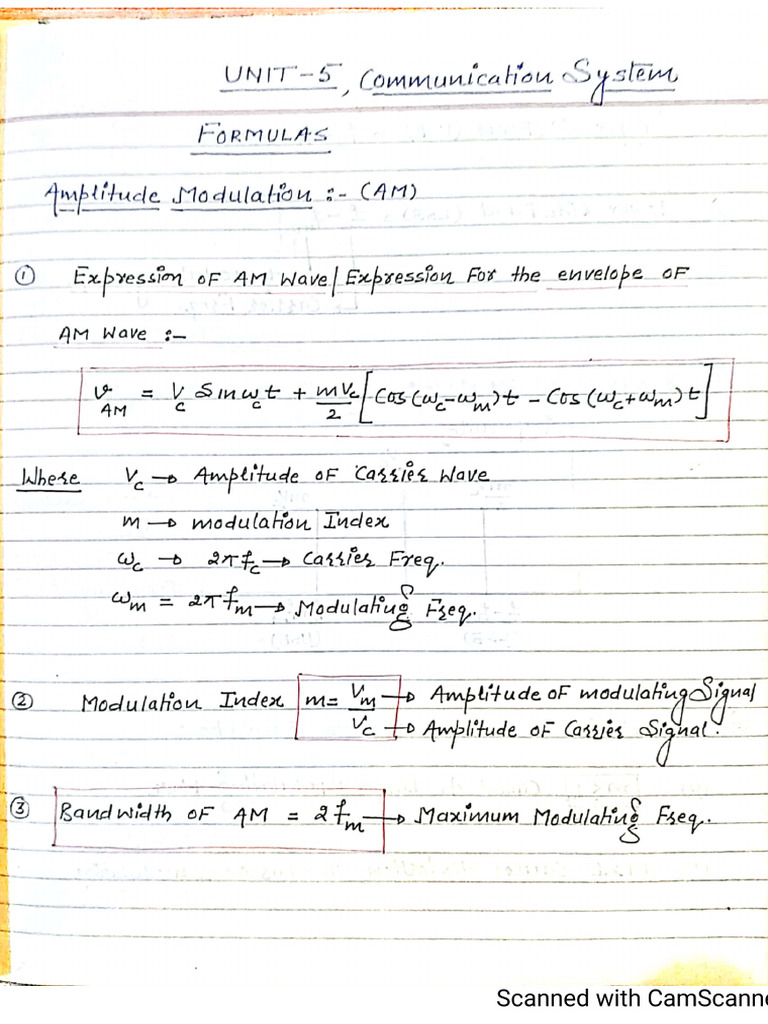 UNIT-5, Communication System
FORMULAS
Amplitude Modulation :- (AM)
① Expression of AM Wave/Expression For the envelope of
AM Wave :-
v_AM = V_c Sin ω_c t + mV_c/2 [Cos (ω_c-ω_m)t - Cos (ω_c+ω_m)t]
Where V_c → Amplitude of Carrier Wave
m → modulation Index
ω_c → 2πf_c → Carrier Freq.
ω_m = 2πf_m → Modulating Freq.
② Modulation Index m = V_m/V_c → Amplitude of modulating Signal
→ Amplitude of Carrier Signal.
③ Bandwidth of AM = 2 f_m → Maximum Modulating Freq.
Scanned with CamScanne